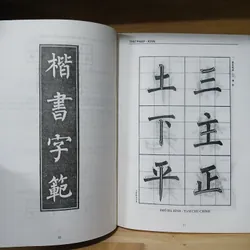 楷書字範
三主正
土下平